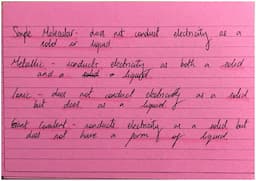 Simple Molecular - does not conduct electricity as a
solid or liquid
Metallic - conducts electricity as both a solid
and a liquid
Ionic - does not conduct electricity as a solid
but does as a liquid
Giant Covalent - conducts electricity as a solid but
does not have a form of liquid.